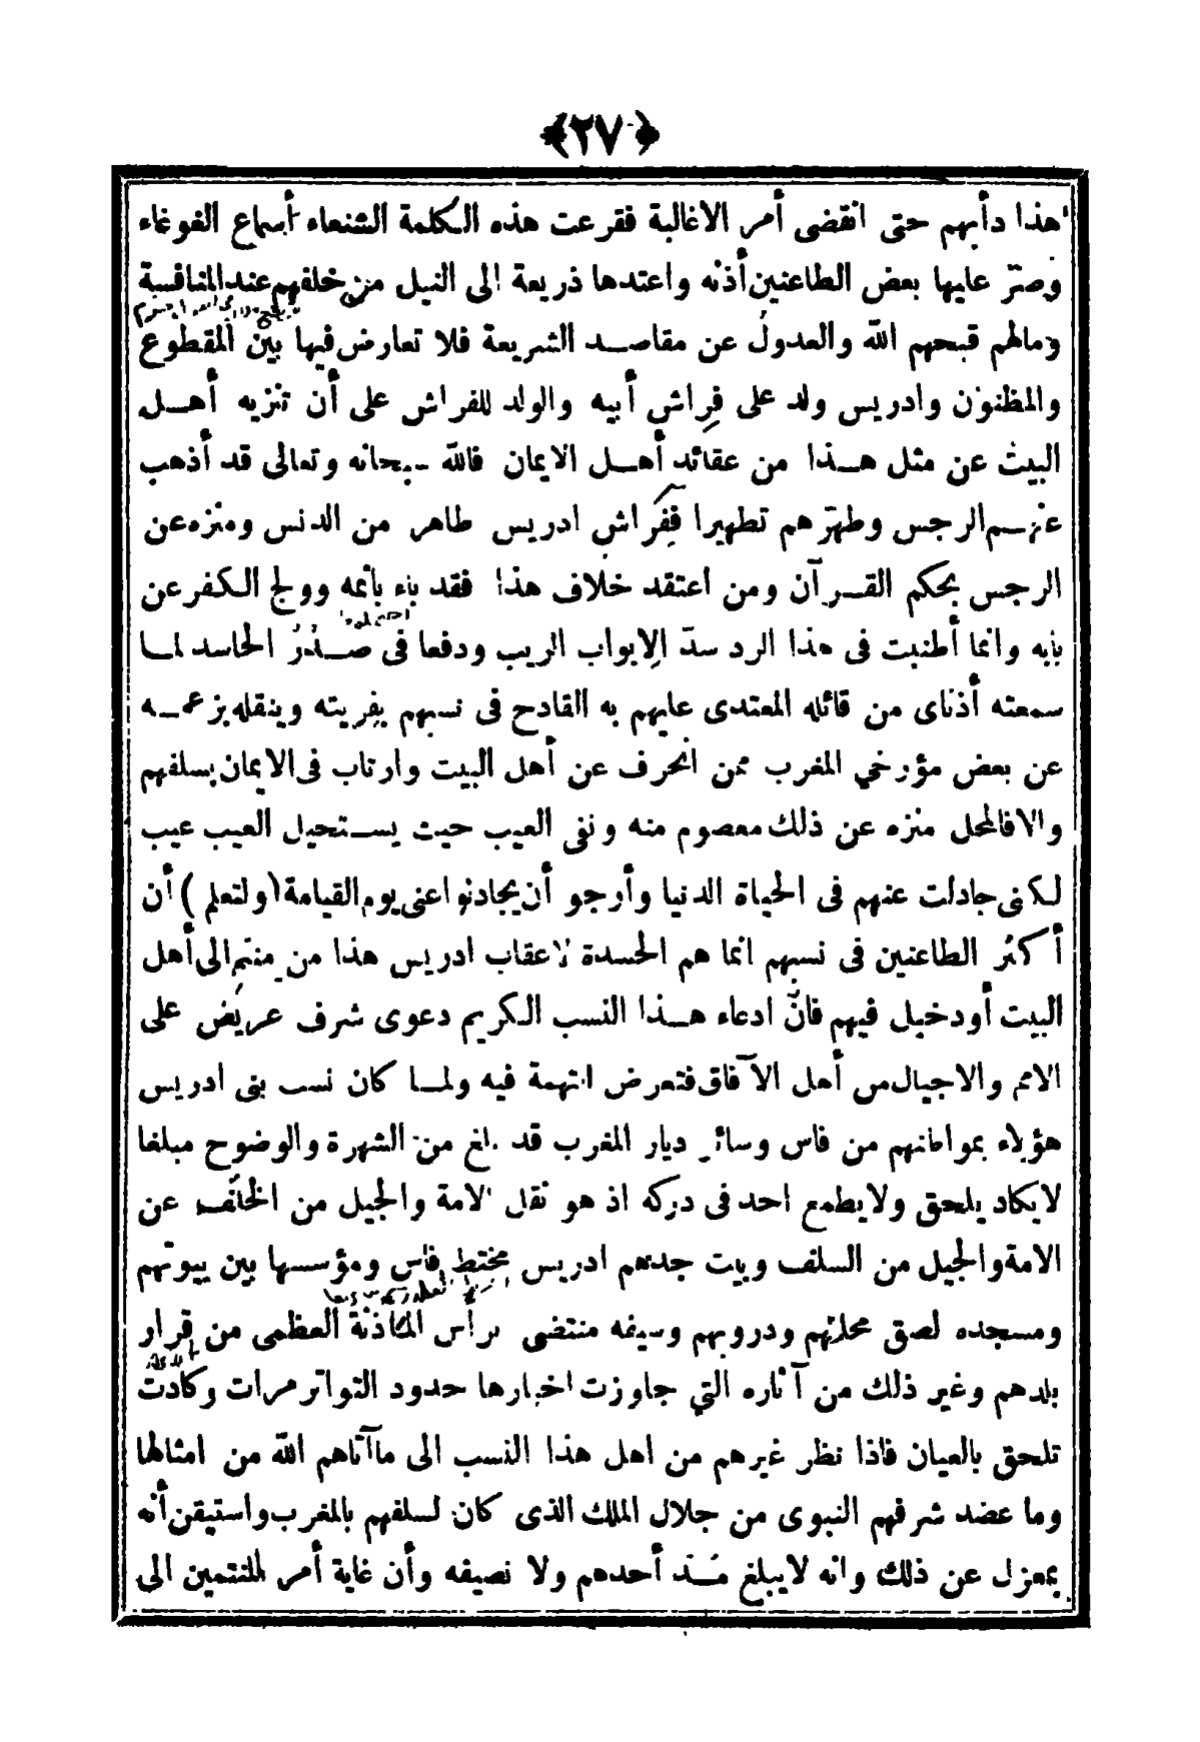 ﴿٢٧﴾
هذا دأبهم حتى انقضى أمر الاغالبة فقرعت هذه الكلمة الشنعاء أسماع الغوغاء
وصرّ عليها بعض الطاعنين أذنه واعتدها ذريعة الى النيل من خلفهم عند المنافسة
ومالهم قبحهم الله والعدول عن مقاصد الشريعة فلا تعارض فيها بين المقطوع
والمظنون وادريس ولد على فراش أبيه والولد للفراش على أن تنزيه أهل
البيت عن مثل هذا من عقائد أهل الايمان فالله سبحانه وتعالى قد أذهب
عنهم الرجس وطهرّهم تطهيرا ففراش ادريس طاهر من الدنس ومنزه عن
الرجس بحكم القرآن ومن اعتقد خلاف هذا فقد باء باثمه وولج الكفر عن
بابه وانما أطنبت فى هذا الرد سدّ الابواب الريب ودفعا فى صدر الحاسد لما
سمعته أذناى من قائله المعتدى عليهم به القادح فى نسبهم بفريته وينقله بزعمه
عن بعض مؤرخي المغرب ممن انحرف عن أهل البيت وارتاب فى الايمان بسلفهم
والا فالمحل منزه عن ذلك معصوم منه ونفى العيب حيث يستحيل العيب عيب
لكنى جادلت عنهم فى الحياة الدنيا وأرجو أن يجادلوا عنى يوم القيامة (ولتعلم) أن
أكثر الطاعنين فى نسبهم انما هم الحسدة لاعقاب ادريس هذا من منتم الى أهل
البيت أو دخيل فيهم فانّ ادعاء هذا النسب الكريم دعوى شرف عريض على
الامم والاجيال من أهل الآفاق فتعرض التهمة فيه ولما كان نسب بنى ادريس
هؤلاء بمواطنهم من فاس وسائر ديار المغرب قد بلغ من الشهرة والوضوح مبلغا
لا يكاد يلحق ولا يطمع احد فى دركه اذ هو نقل الامة والجيل من الخلف عن
الامة والجيل من السلف وبيت جدهم ادريس مختط فاس ومؤسسها بين بيوتهم
ومسجده لصق محلتهم ودروبهم وسيفه منتضى برأس المئاذنة العظمى من قرار
بلدهم وغير ذلك من آثاره التي جاوزت اخبارها حدود التواتر مرات وكادت
تلحق بالعيان فاذا نظر غيرهم من اهل هذا النسب الى ما آتاهم الله من امثالها
وما عضد شرفهم النبوى من جلال الملك الذى كان لسلفهم بالمغرب واستيقن أنه
بمعزل عن ذلك وانه لا يبلغ مُدّ أحدهم ولا نصيفه وأن غاية أمر المنتمين الى